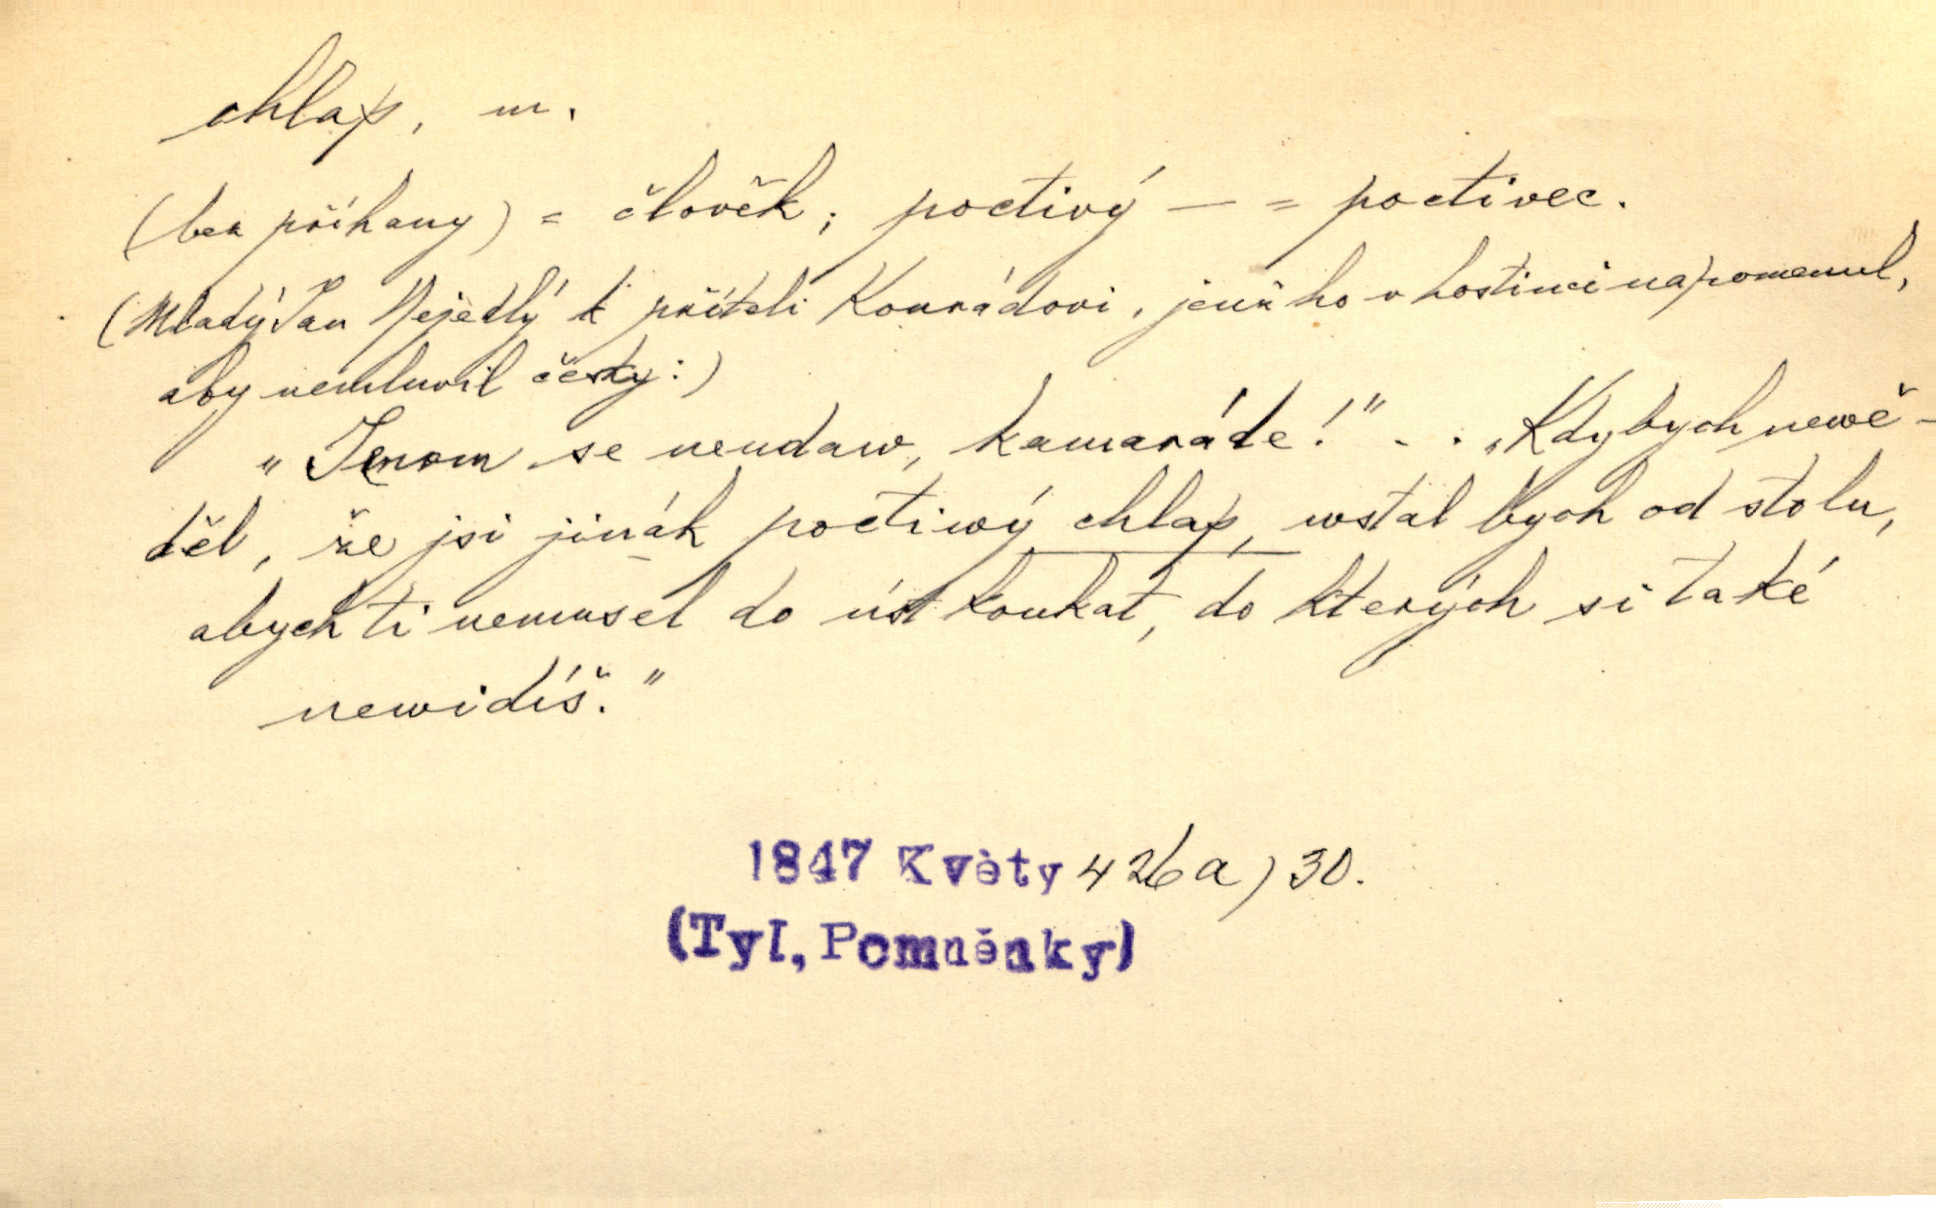 chlap, m.
(bez příhany) = člověk; poctivý — = poctivec.
(Mladý Jan Nejedlý k příteli Konrádovi, jenž ho v hostinci napomenul,
aby nemluvil česky:)
"Jenom se neudaw, kamaráde!" - . "Kdybych newě-
děl, že jsi jinák poctiwý chlap, wstal bych od stolu,
abych ti nemusel do úst koukat, do kterých si také
newidíš."
1847 Květy 426a) 30.
(Tyl, Pomněnky)